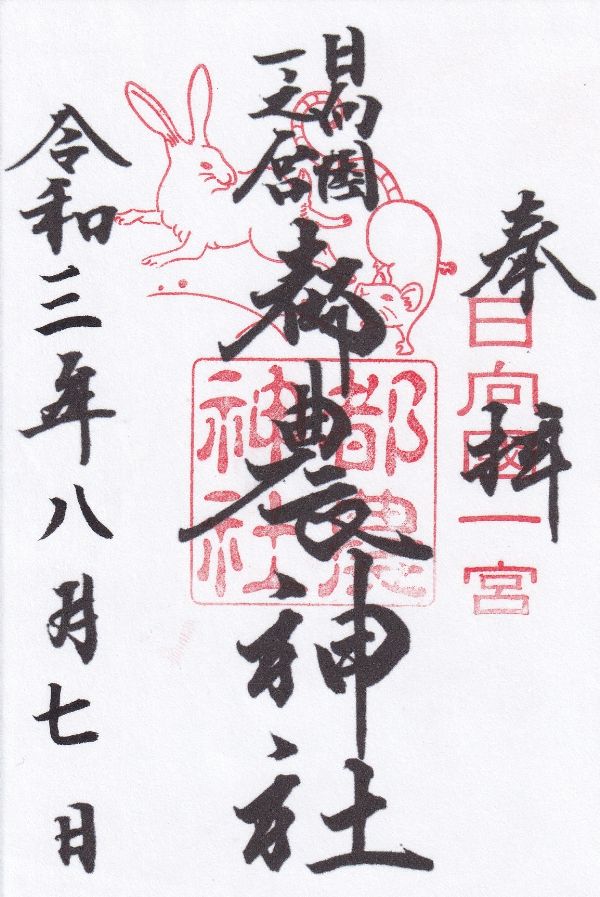 奉拝
日向國一宮
日向國
一之宮
都農神社
都農神社
令和三年八月七日